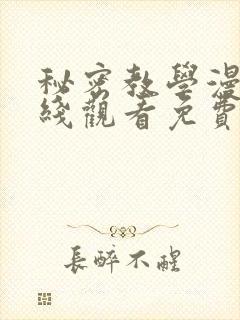 秘密教學漫
綫觀看免費
長醉不醒